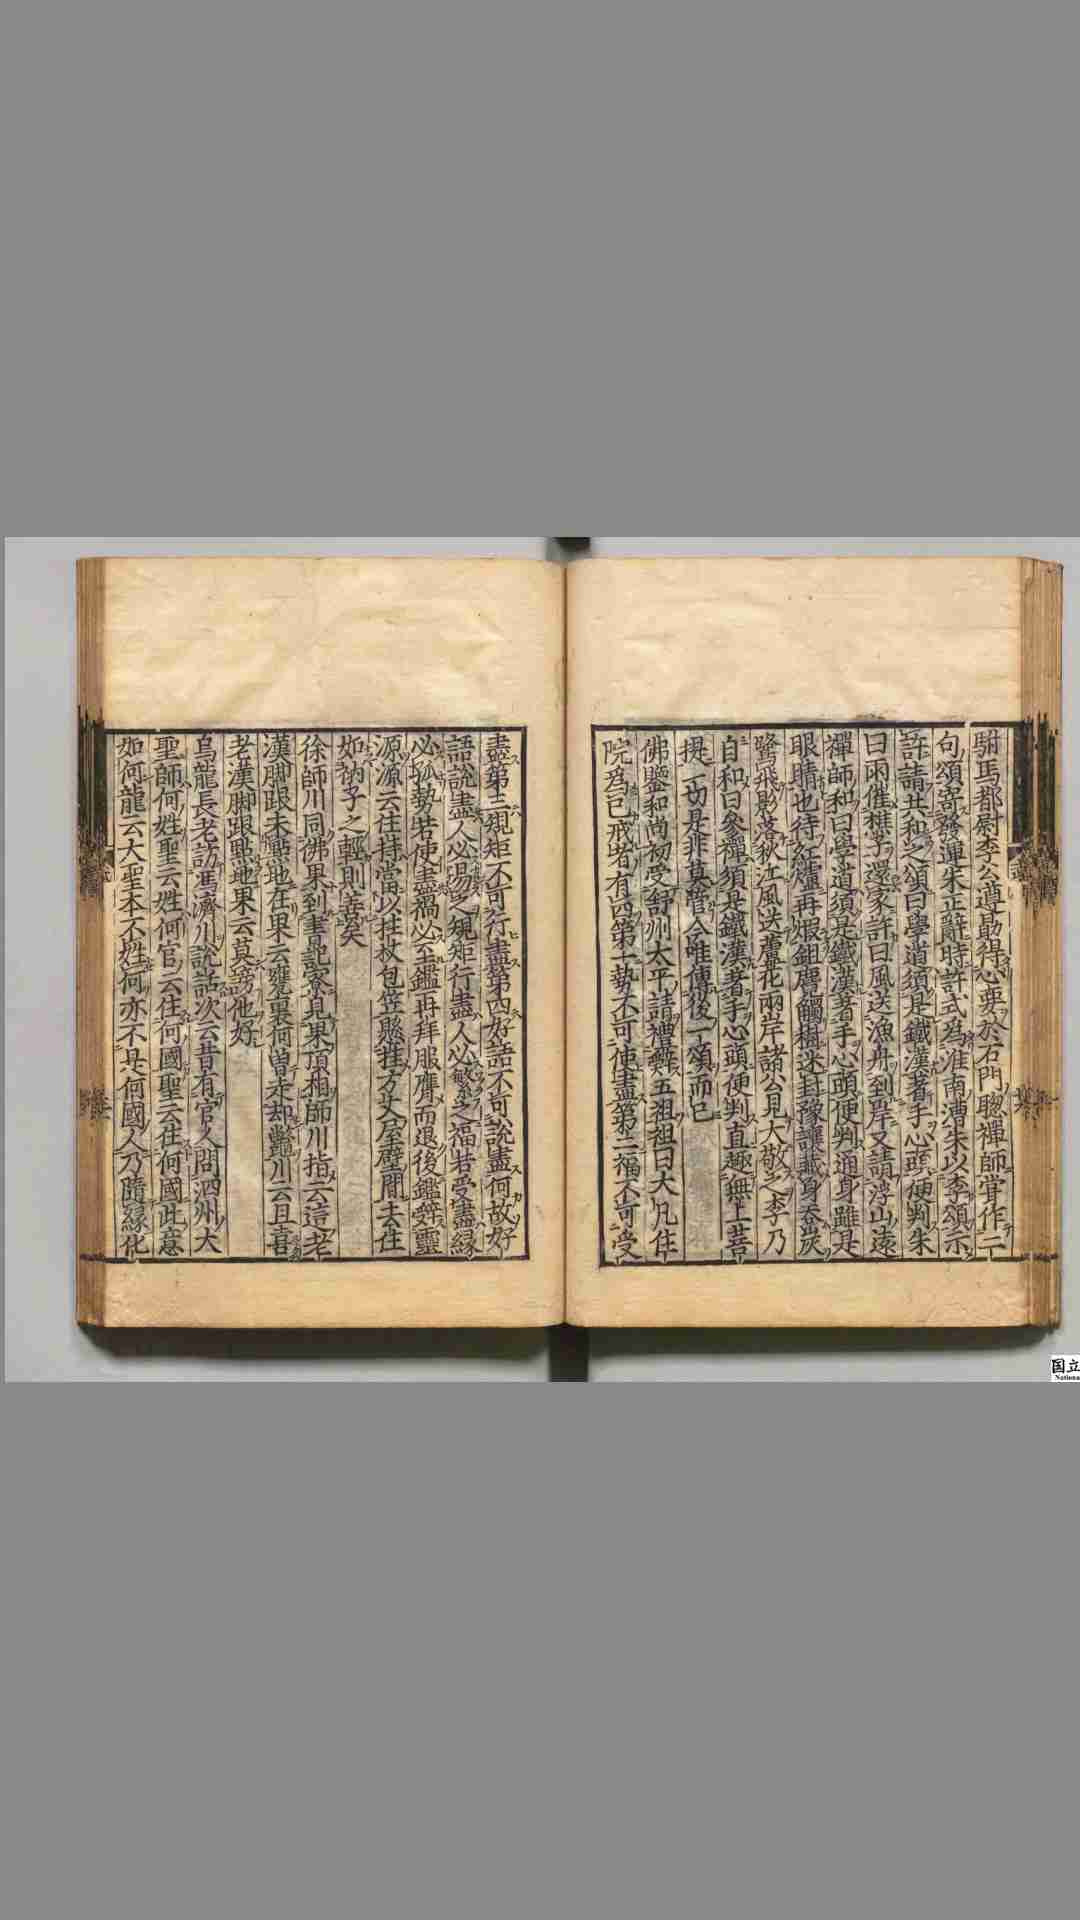 駙馬都尉李公遵勗得心要於石門聰禪師甞作二
句頌寄發運朱正辭時許式為淮南漕朱以李頌示
許請共和之頌曰學道須是鐵漢著手心頭便判朱
曰雨催樵子還家許曰風送漁舟到岸又請浮山遠
禪師和曰學道須是鐵漢著手心頭便判通身雖是
眼睛也待紅爐再煅鉏麑觸樹迷封豫讓藏身吞炭
鷺飛影落秋江風送蘆花兩岸諸公見大敬之李乃
自和曰參禪須是鐵漢著手心頭便判直趣無上菩
提一切是非莫管今唯傳後一頌而已
佛鑒和尚初受舒州太平請禮辭五祖祖曰大凡住
院爲己戒者有四第一勢不可使盡第二福不可受
盡第三規矩不可行盡第四好語不可說盡何故好
語說盡人必易之規矩行盡人必繁之福若受盡緣
必孤勢若使盡禍必至鑑再拜服膺而退後鑑辭靈
源源云住持當以拄杖包笠懸挂方丈屋壁間去住
如衲子之輕則善矣
徐師川同佛果到書記寮見果頂相師川指云這老
漢脚跟未點地在果云甕裏何曽走却鼈川云且喜
老漢脚跟點地果云莫謗他好
烏龍長老訪馮濟川說話次云昔有官人問泗州大
聖師何姓聖云姓何官云住何國聖云住何國此意
如何龍云大聖本不姓何亦不是何國人乃隨緣化
国立
National